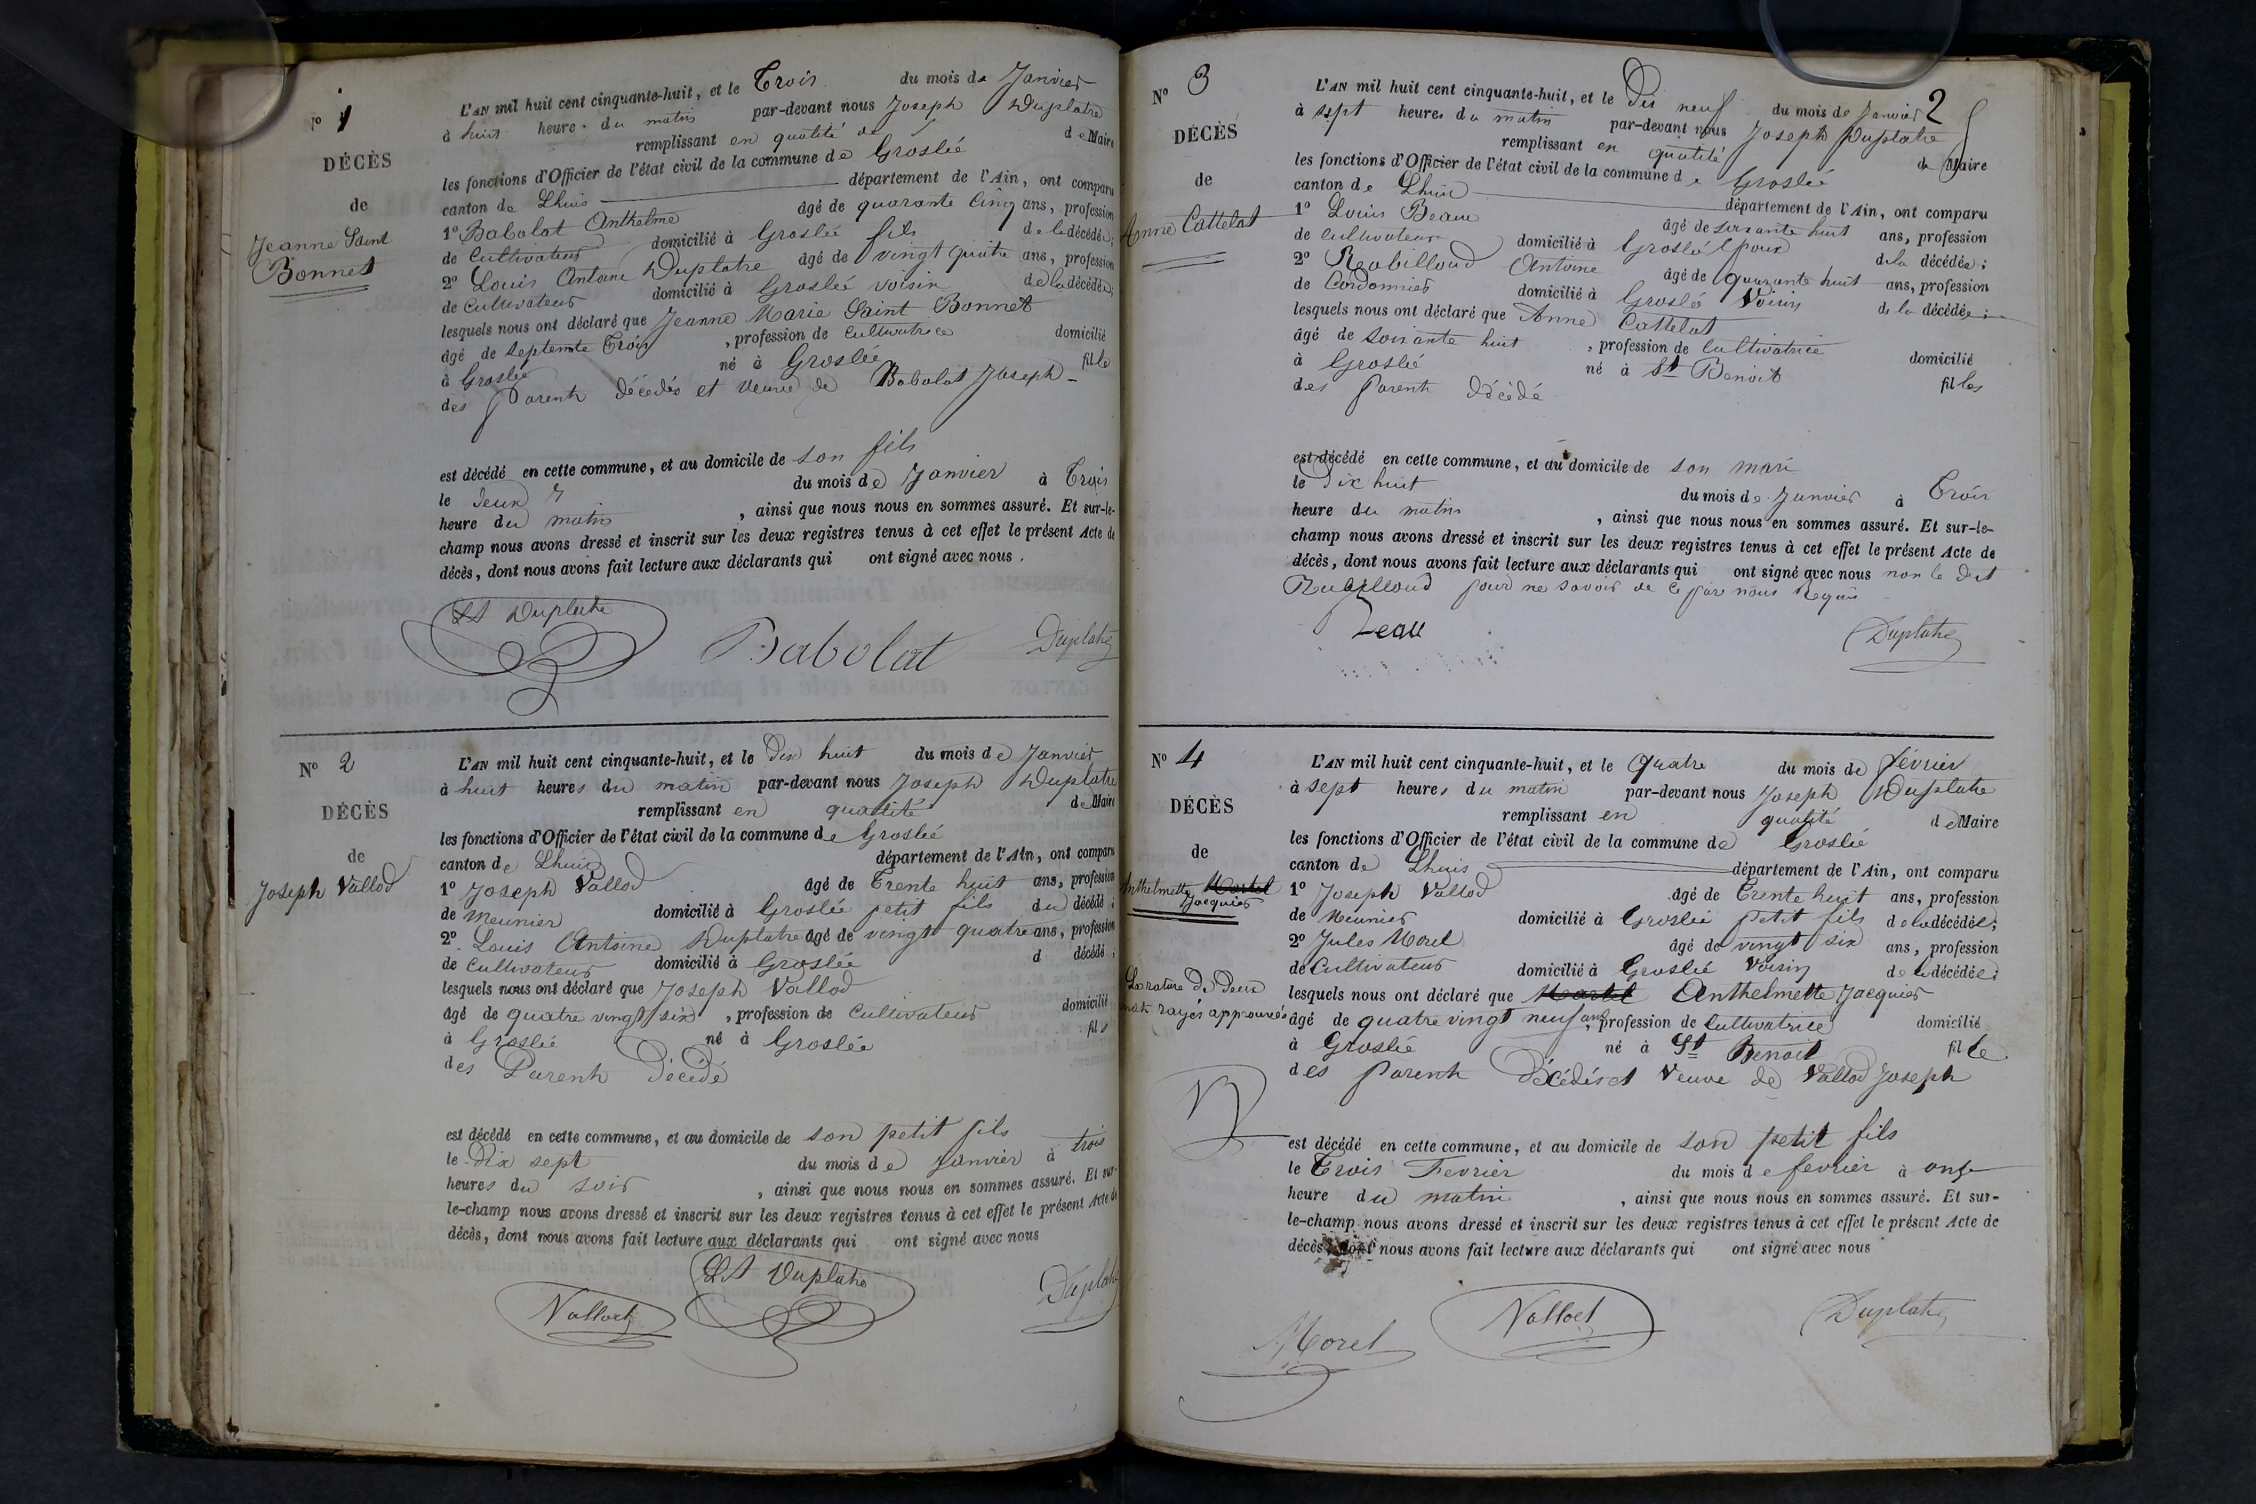 N° 1
DÉCÈS
de
Jeanne Saint
Bonnet
L'AN mil huit cent cinquante-huit, et le Trois du mois de Janvier
à huit heure du matin par-devant nous Joseph Duplatre
remplissant en qualité de de Maire
les fonctions d'Officier de l'état civil de la commune de Groslée
canton de Lhuis département de l'Ain, ont comparu
1° Babolat Anthelme âgé de quarante Cinq ans, profession
de Cultivateur domicilié à Groslée fils de la décédée;
2° Louis Antoine Duplatre âgé de vingt quatre ans, profession
de Cultivateur domicilié à Groslée voisin de la décédée;
lesquels nous ont déclaré que Jeanne Marie Saint Bonnet
âgé de septente Trois, profession de Cultivatrice domicilié
à Groslée né à Groslée fille
des Parents décédés et veuve de Babolat Joseph
est décédé en cette commune, et au domicile de son fils
le deux du mois de Janvier à Trois
heure du matin, ainsi que nous nous en sommes assuré. Et sur-le-
champ nous avons dressé et inscrit sur les deux registres tenus à cet effet le présent Acte de
décès, dont nous avons fait lecture aux déclarants qui ont signé avec nous.
LA Duplatre Babolat Duplatre
N° 2
DÉCÈS
de
Joseph Vallod
L'AN mil huit cent cinquante-huit, et le Dix huit du mois de Janvier
à huit heures du matin par-devant nous Joseph Duplatre
remplissant en qualité de Maire
les fonctions d'Officier de l'état civil de la commune de Groslée
canton de Lhuis département de l'Ain, ont comparu
1° Joseph Vallod âgé de Trente huit ans, profession
de Meunier domicilié à Groslée petit fils du décédé;
2° Louis Antoine Duplatre âgé de vingt quatre ans, profession
de Cultivateur domicilié à Groslée d décédé;
lesquels nous ont déclaré que Joseph Vallod
âgé de quatre vingt six, profession de Cultivateur domicilié
à Groslée né à Groslée fils
des Parents Décédé
est décédé en cette commune, et au domicile de son petit fils
le Dix sept du mois de Janvier à trois
heures du soir, ainsi que nous nous en sommes assuré. Et sur-
le-champ nous avons dressé et inscrit sur les deux registres tenus à cet effet le présent Acte de
décès, dont nous avons fait lecture aux déclarants qui ont signé avec nous
Vallod LA Duplatre Duplatre
2
N° 3
DÉCÈS
de
Anne Cattelat
L'AN mil huit cent cinquante-huit, et le Dix neuf du mois de Janvier
à sept heures du matin par-devant nous Joseph Duplatre
remplissant en qualité de Maire
les fonctions d'Officier de l'état civil de la commune de Groslée
canton de Lhuis département de l'Ain, ont comparu
1° Louis Beau âgé de soixante huit ans, profession
de Cultivateur domicilié à Groslé Epoux de la décédée;
2° Rabilloud Antoine âgé de Quarante huit ans, profession
de Cordonnier domicilié à Groslé Voisin de la décédée;
lesquels nous ont déclaré que Anne Cattelat
âgé de soixante huit, profession de Cultivatrice domicilié
à Groslée né à St Benoit filles
des Parents Décédé
est décédé en cette commune, et au domicile de son mari
le Dix huit du mois de Janvier à Trois
heure du matin, ainsi que nous nous en sommes assuré. Et sur-le-
champ nous avons dressé et inscrit sur les deux registres tenus à cet effet le présent Acte de
décès, dont nous avons fait lecture aux déclarants qui ont signé avec nous non le dit
Rabilloud pour ne savoir de ce par nous Requis
Beau Duplatre
N° 4
DÉCÈS
de
Anthelmette Martel
Jacquier
La rature de Deux
mots rayés approuvés
L'AN mil huit cent cinquante-huit, et le Quatre du mois de février
à sept heures du matin par-devant nous Joseph Duplatre
remplissant en qualité de Maire
les fonctions d'Officier de l'état civil de la commune de Groslée
canton de Lhuis département de l'Ain, ont comparu
1° Joseph Vallod âgé de Trente huit ans, profession
de Meunier domicilié à Groslée petit fils de la décédée;
2° Jules Morel âgé de vingt six ans, profession
de Cultivateur domicilié à Groslée Voisin de la décédée;
lesquels nous ont déclaré que Martel Anthelmette Jacquier
âgé de quatre vingt neuf ans, profession de Cultivatrice domicilié
à Groslée né à St Benoit fille
des Parents Décédés et Veuve de Vallod Joseph
est décédé en cette commune, et au domicile de son petit fils
le Trois Fevrier du mois de fevrier à onze
heure du matin, ainsi que nous nous en sommes assuré. Et sur-
le-champ nous avons dressé et inscrit sur les deux registres tenus à cet effet le présent Acte de
décès, dont nous avons fait lecture aux déclarants qui ont signé avec nous
Morel Vallod Duplatre